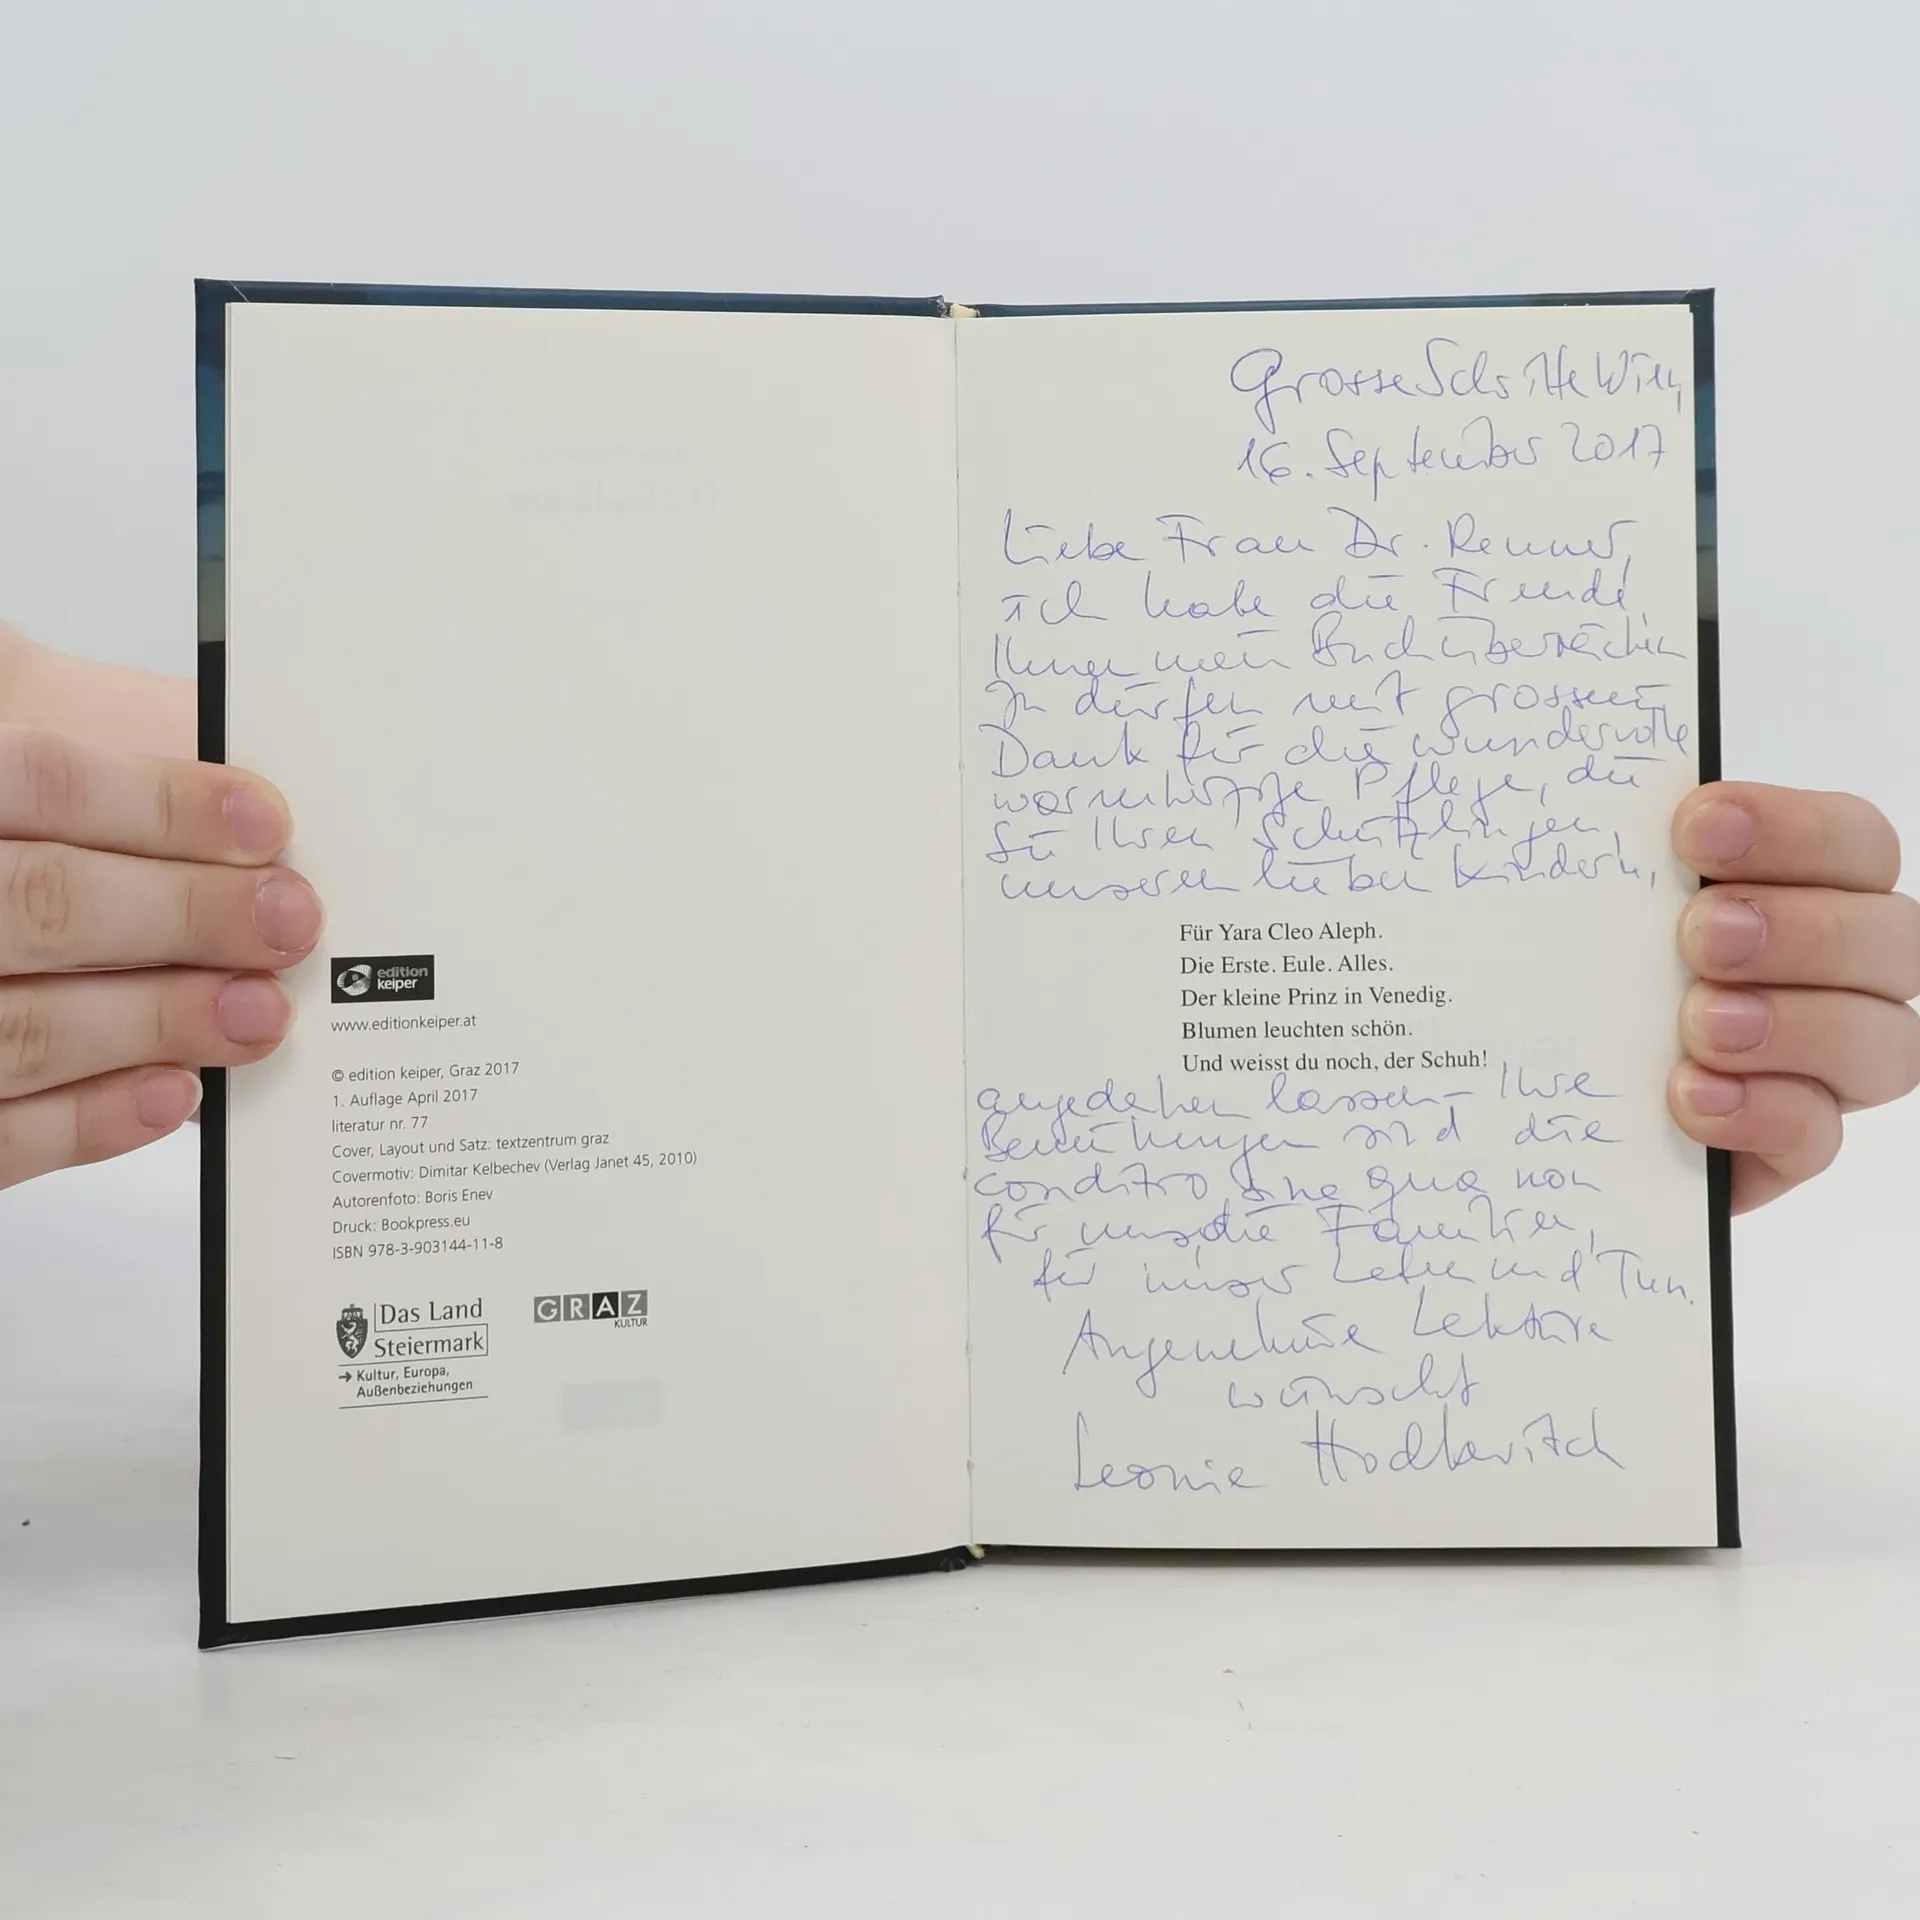 edition
keiper
www.editionkeiper.at
© edition keiper, Graz 2017
1. Auflage April 2017
literatur nr. 77
Cover, Layout und Satz: textzentrum graz
Covermotiv: Dimitar Kelbechev (Verlag Janet 45, 2010)
Autorenfoto: Boris Enev
Druck: Bookpress.eu
ISBN 978-3-903144-11-8
Das Land
Steiermark
→ Kultur, Europa,
Außenbeziehungen
GRAZ
KULTUR
Grosse Schritte Wien,
16. September 2017
Liebe Frau Dr. Renner,
ich habe die Freude,
Ihnen mein Buch überreichen
zu dürfen mit grossem
Dank für die wundervolle
warmherzige Pflege, die
Sie Ihren Schützlingen,
unseren lieben Kindern,
Für Yara Cleo Aleph.
Die Erste. Eule. Alles.
Der kleine Prinz in Venedig.
Blumen leuchten schön.
Und weisst du noch, der Schuh!
angedeihen lassen – Ihre
Bemühungen sind die
conditio sine qua non
für uns, die Familien,
für unser Leben und Tun.
Angenehme Lektüre
wünscht
Leonie Hodkevitch